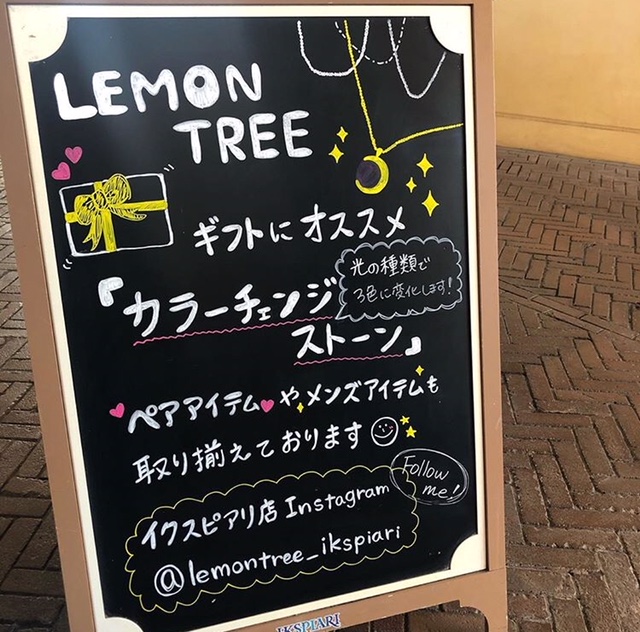 LEMON
TREE
ギフトにオススメ
光の種類で
3色に変化します!
『カラーチェンジ
ストーン』
ペアアイテムやメンズアイテムも
取り揃えております
Follow
me!
イクスピアリ店 Instagram
@lemontree_ikspiari
IKSPIARI